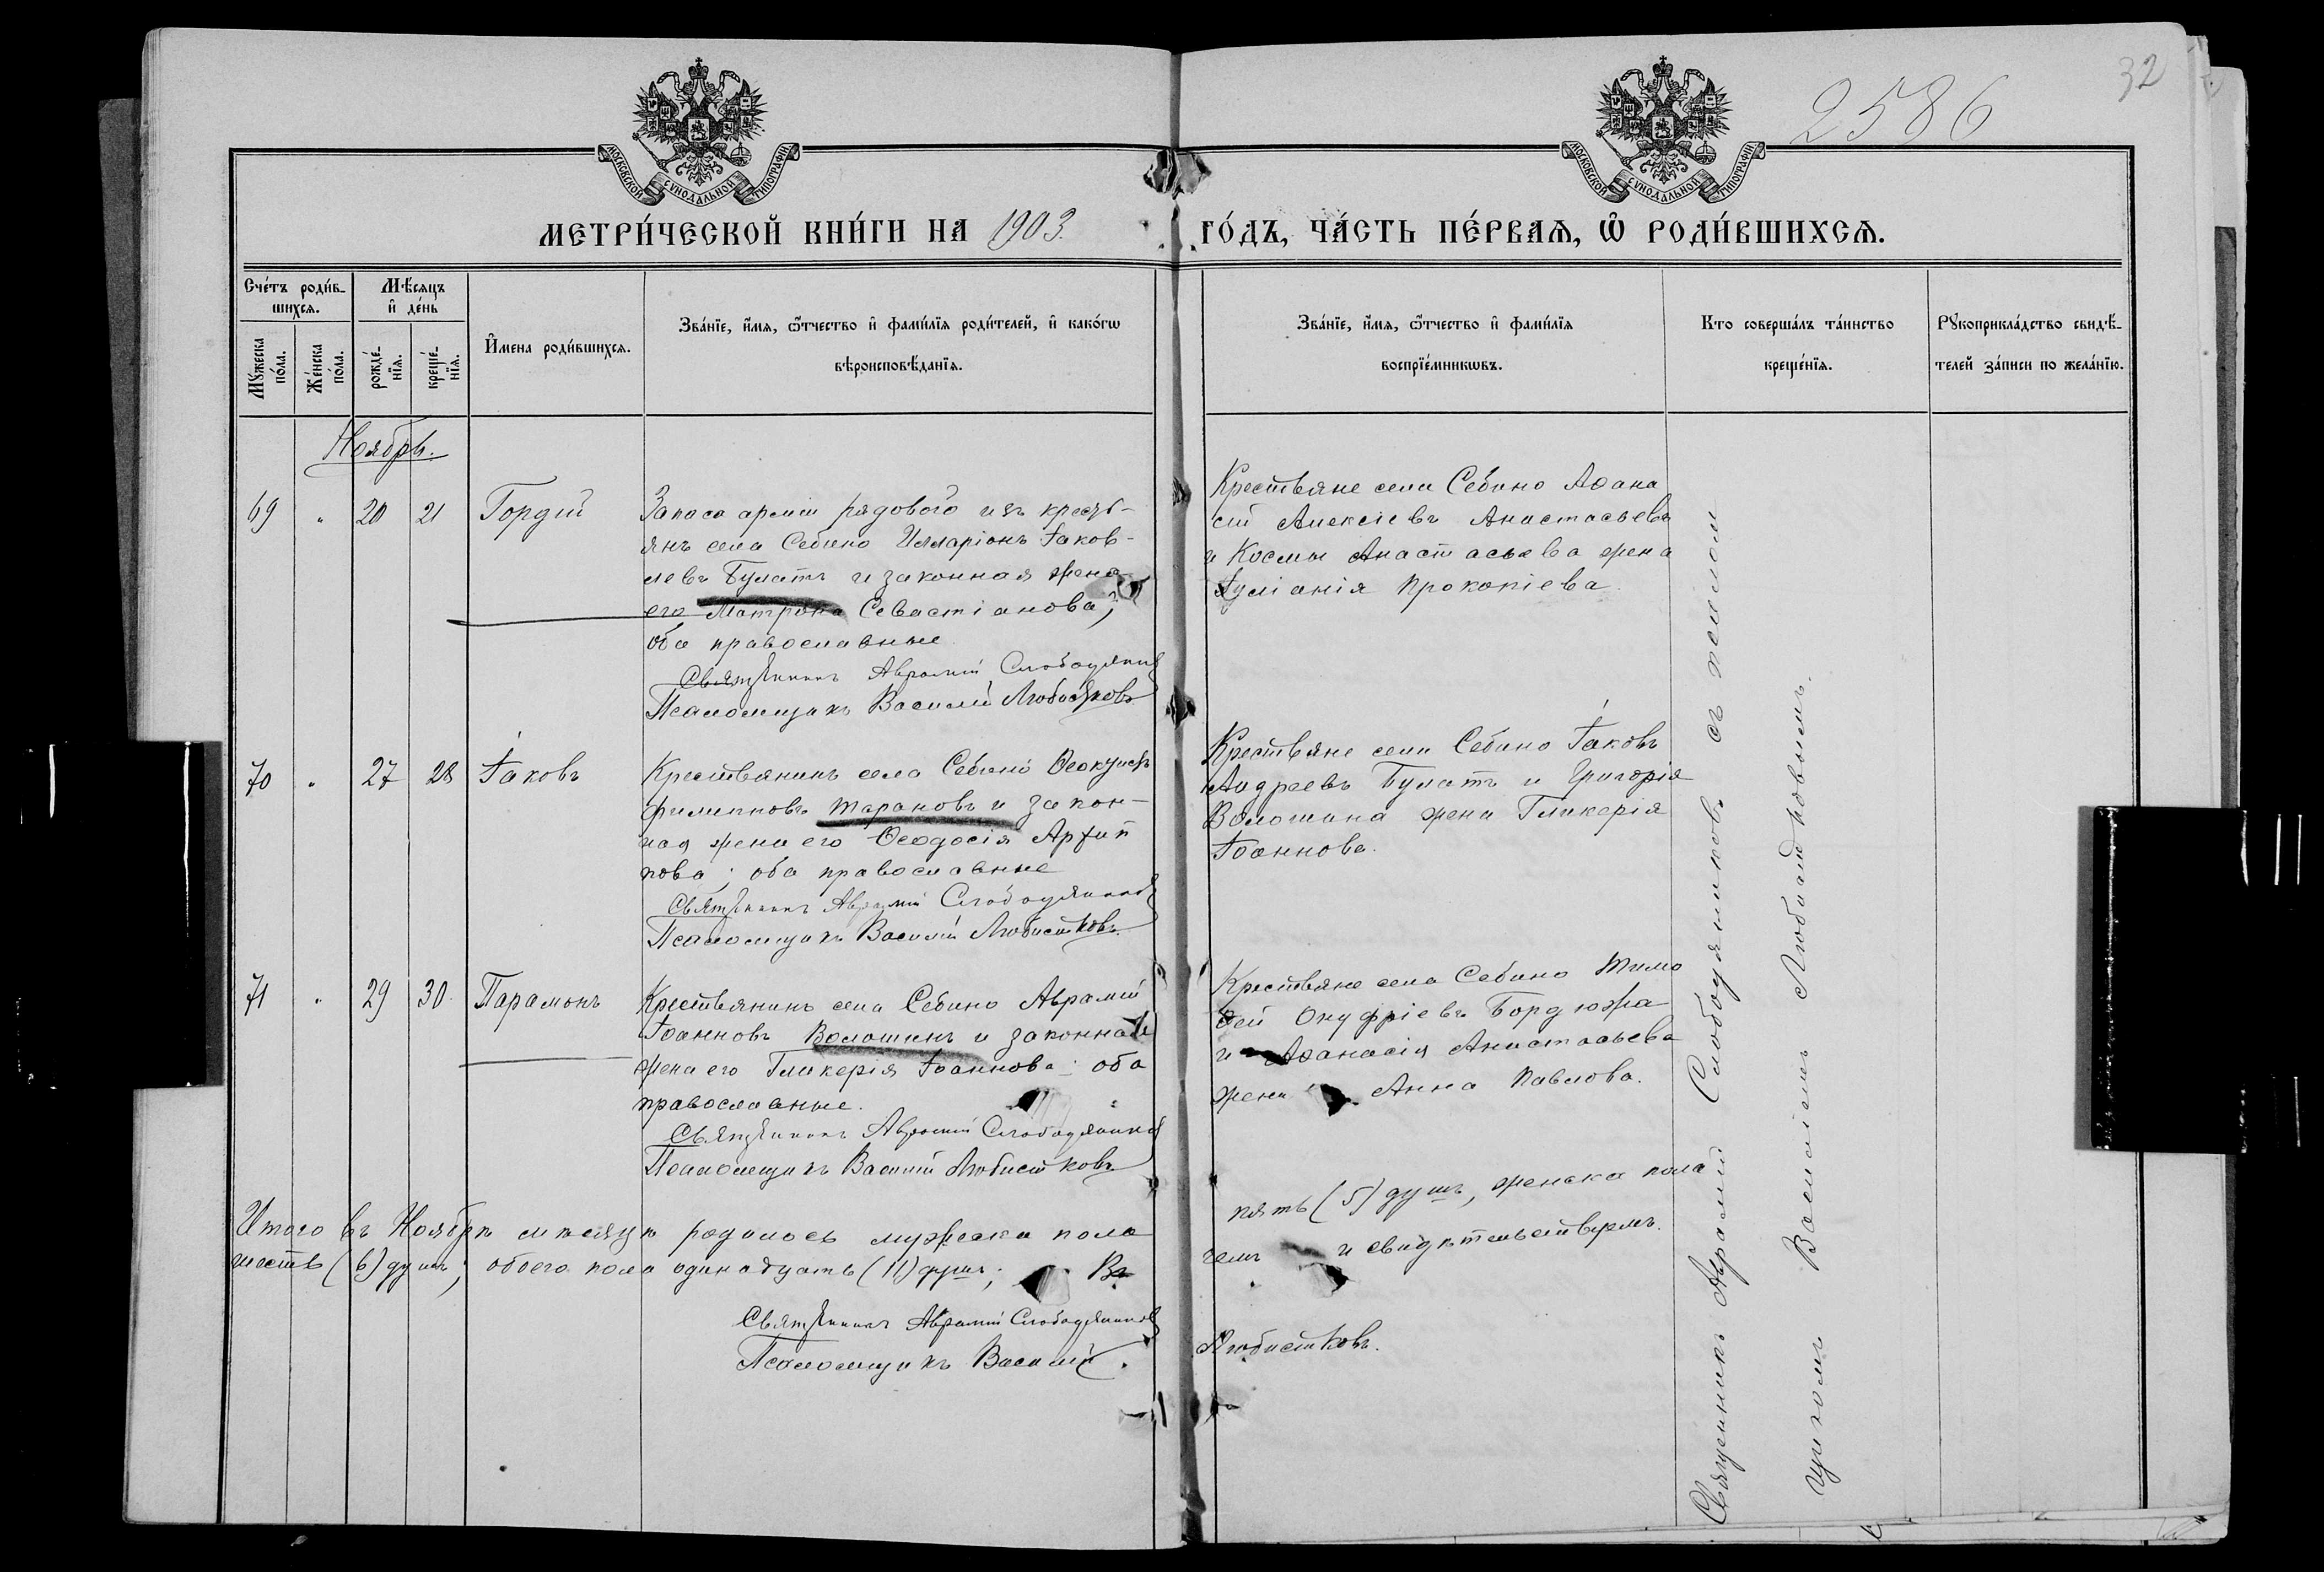 32
2586
МОСКОВСКОЙ СУНОДАЛЬНОЙ ТИПОГРАФІИ
МОСКОВСКОЙ СУНОДАЛЬНОЙ ТИПОГРАФІИ
МЕТРИ́ЧЕСКОЙ КНИ́ГИ НА 1903. ГО́ДЪ, ЧА́СТЬ ПЕ́РВАѦ, Ѡ҆ РОДИ́ВШИХСѦ.
Сче́тъ роди́в-
шихсѧ.
Мꙋ́жеска по́ла.
Же́нска по́ла.
Мѣ́сѧцъ
и҆ де́нь
рожде́-
нїѧ.
креще́-
нїѧ.
И҆мена роди́вшихсѧ.
Зва́нїе, и҆́мѧ, ѻ҆́тчество и҆ фами́лїѧ роди́телей, и҆ како́гѡ
вѣроисповѣ́данїѧ.
Зва́нїе, и҆́мѧ, ѻ҆́тчество и҆ фами́лїѧ
воспрїе́мникѡвъ.
Кто соверша́лъ та́инство
креще́нїѧ.
Рꙋкоприкла́дство свидѣ́-
телей за́писи по жела́нїю.
Ноябрь.
69 " 20 21 Гордій
Запаса арміи рядового изъ кресть-
янъ села Себино Илларіонъ Іаков-
левъ Булатъ и законная жена
его Матрона Севастіанова;
оба православные
Священникъ Аврамій Слободяников
Псаломщикъ Василій Любистковъ
Крестьяне села Себино Аѳана
сій Алексіевъ Анастасьевъ
и Космы Анастасьева жена
Іуліанія Прокопіева.
70 " 27 28 Іаковъ
Крестьянинъ села Себино Ѳеоктистъ
Филипповъ Тарановъ и закон-
ная жена его Ѳеодосія Архип
пова; оба православные
Священникъ Аврамій Слободяников
Псаломщикъ Василій Любистковъ
Крестьяне села Себино Іаковъ
Андреевъ Булатъ и Григорія
Волошина жена Гликерія
Іоаннова.
71 " 29 30 Парамонъ
Крестьянинъ села Себино Аврамій
Іоанновъ Волошинъ и законная
жена его Гликерія Іоаннова; оба
православные.
Священникъ Аврамій Слободяников
Псаломщикъ Василій Любистковъ
Крестьяне села Себино Тимо
ѳей Онуфріевъ Бордюжа
и Аѳанасія Анастасьева
жена Анна Павлова.
Итого въ Ноябрѣ мѣсяцѣ родилось мужеска пола пять (5) душъ, женска пола
шесть (6) душъ; обоего пола одинадцать (11) душъ; Въ чемъ и свидѣтельствуемъ.
Священникъ Аврамій Слободяников
Псаломщикъ Василій Любистковъ.
Священникъ Аврамій Слободяниковъ съ псалом
щикомъ Василіемъ Любистковымъ.